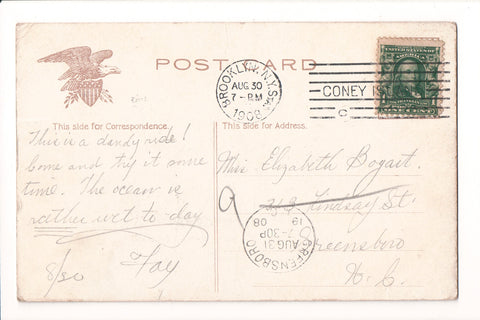 POST CARD
BROOKLYN, N.Y. STA.
AUG 30
7-PM
1908
CONEY IS
C
This side for Correspondence.
This side for Address.
This is a dandy ride!
Come and try it some
time. The ocean is
rather wet to-day
8/30 Fay
Miss Elizabeth Bogart
Lindsay St.
Greensboro
N.C.
GREENSBORO
AUG 31
7-30P
1908